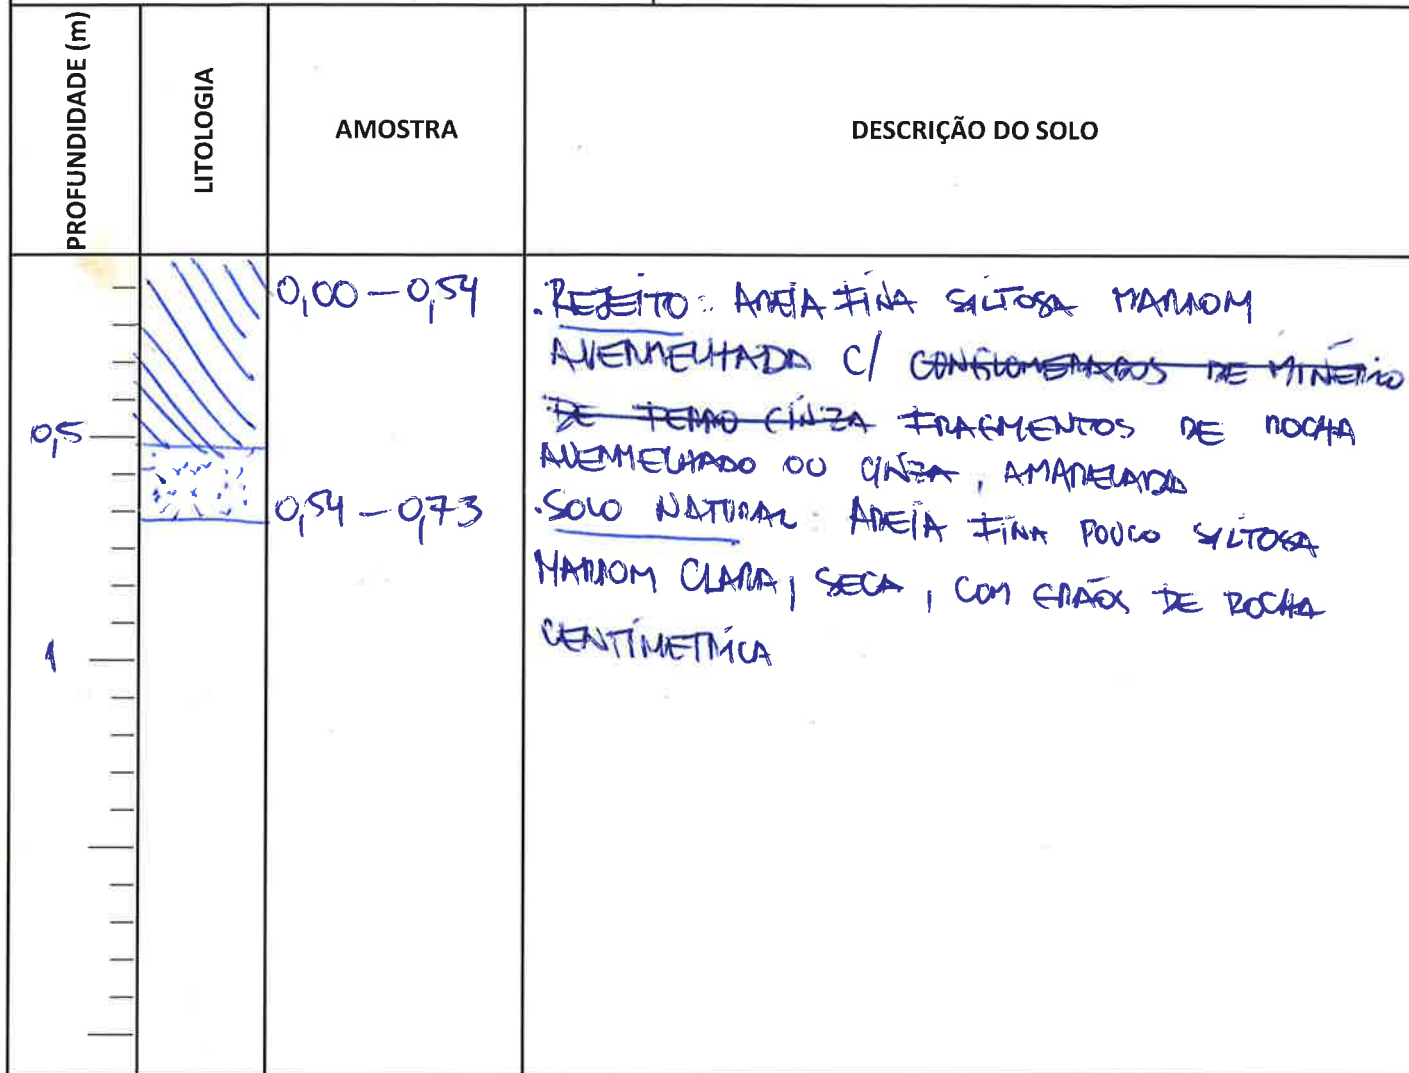 PROFUNDIDADE (m)
LITOLOGIA
AMOSTRA
DESCRIÇÃO DO SOLO
0,00 – 0,54
. REJEITO: AREIA FINA SILTOSA MARROM
AVERMELHADA C/ CONGLOMERADOS DE MINÉRIO
DE FERRO CINZA FRAGMENTOS DE ROCHA
AVERMELHADO OU CINZA, AMARELADA
0,5
0,54 – 0,73
. SOLO NATURAL: AREIA FINA POUCO SILTOSA
MARROM CLARA, SECA, COM GRÃOS DE ROCHA
CENTÍMETRICA
1